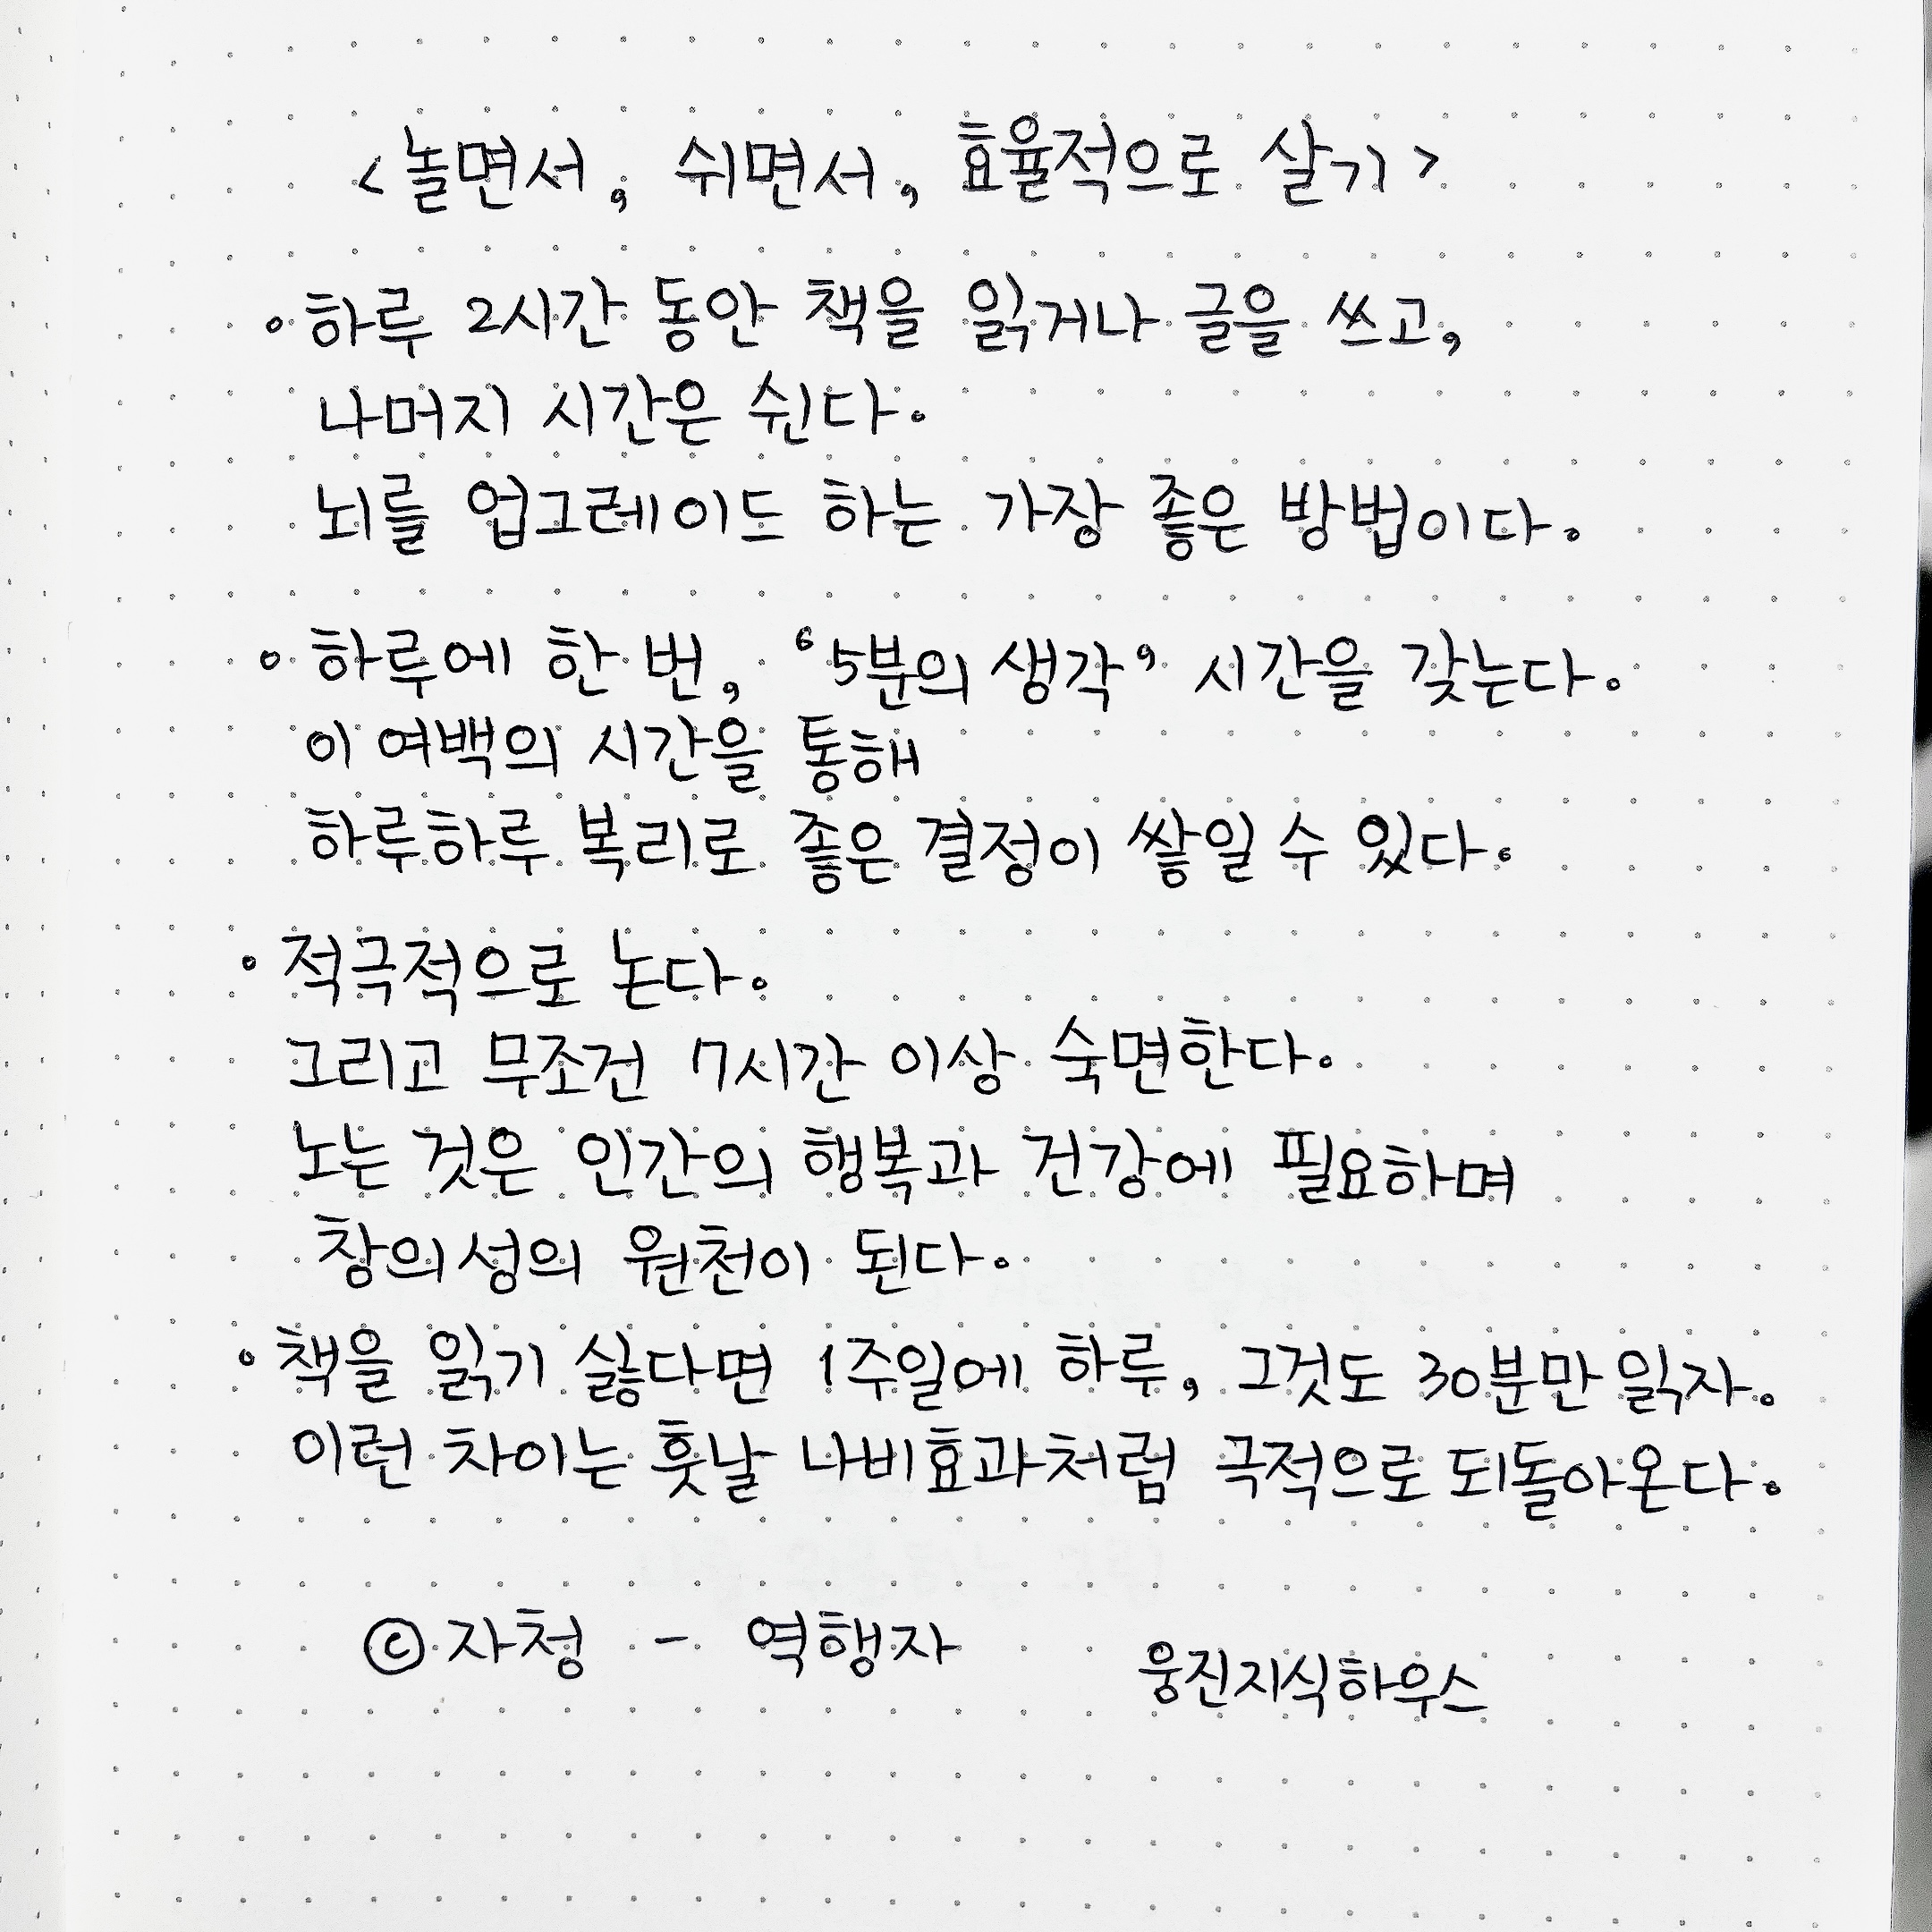 <놀면서, 쉬면서, 효율적으로 살기>
• 하루 2시간 동안 책을 읽거나 글을 쓰고,
나머지 시간은 쉰다.
뇌를 업그레이드 하는 가장 좋은 방법이다.
• 하루에 한 번, '5분의 생각' 시간을 갖는다.
이 여백의 시간을 통해
하루하루 복리로 좋은 결정이 쌓일 수 있다.
• 적극적으로 논다.
그리고 무조건 7시간 이상 숙면한다.
노는 것은 인간의 행복과 건강에 필요하며
창의성의 원천이 된다.
• 책을 읽기 싫다면 1주일에 하루, 그것도 30분만 읽자.
이런 차이는 훗날 나비효과처럼 극적으로 되돌아온다.
© 자청 - 역행자
웅진지식하우스